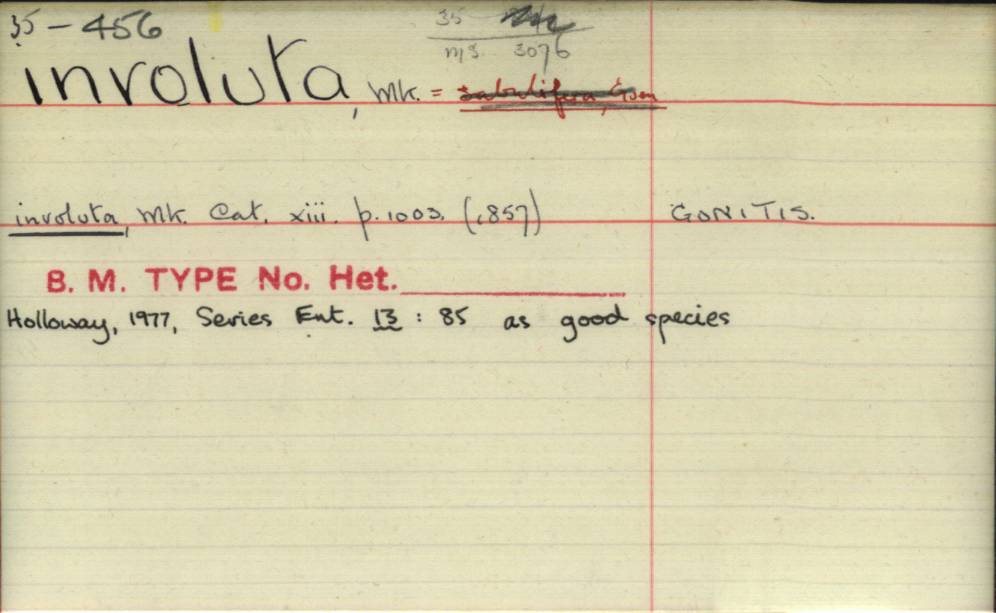 35-456
35
MS 3076
involuta, Wlk. = subulifera, Guen
involuta, Wlk. Cat. xiii. p. 1003. (1857) GONITIS.
B. M. TYPE No. Het.
Holloway, 1977, Series Ent. 13 : 85 as good species